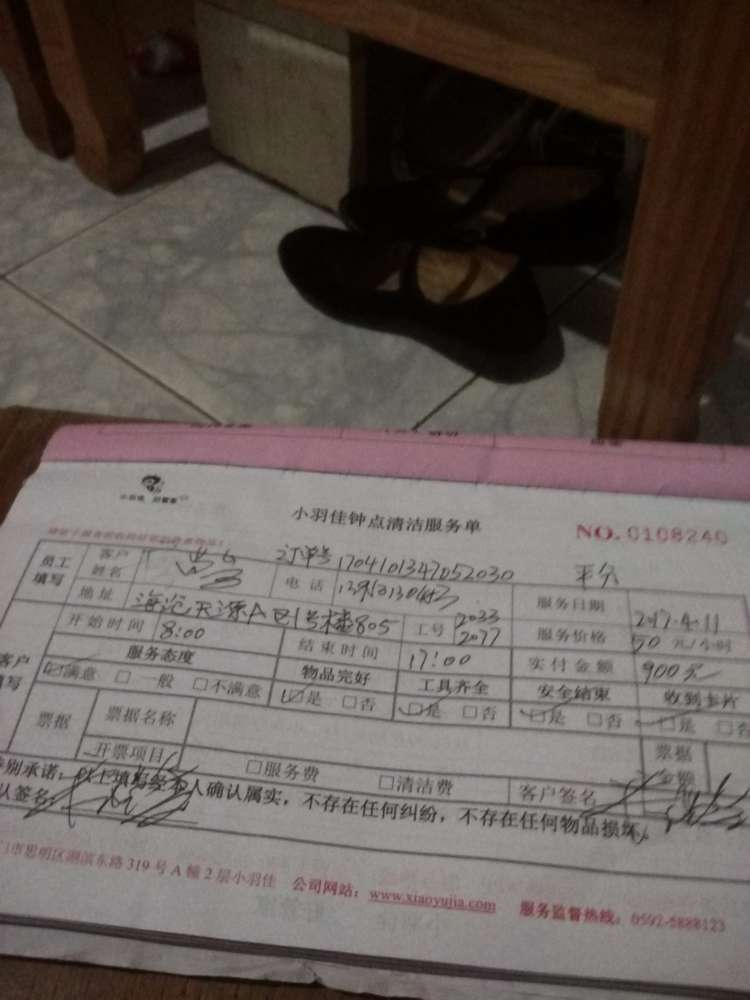 小羽佳钟点清洁服务单
NO. 0108240
订单号 1704101347052030 平分
员工填写 客户姓名 电话 服务日期 2017.4.11
地址 海沧天源A区1号楼805 工号 2033 2077 服务价格 50 元/小时
客户填写 开始时间 8:00 结束时间 17:00 实付金额 900元
服务态度 物品完好 工具齐全 安全结束 收到卡片
☑满意 □一般 □不满意 ☑是 □否 ☑是 □否 ☑是 □否 ☑是 □否
票据 票据名称 票据金额
开票项目 □服务费 □清洁费 客户签名
特别承诺：以上填写经本人确认属实，不存在任何纠纷，不存在任何物品损坏。
认签名：
门市思明区湖滨东路 319 号 A 幢 2 层小羽佳 公司网站：www.xiaoyujia.com 服务监督热线：0592-5888123